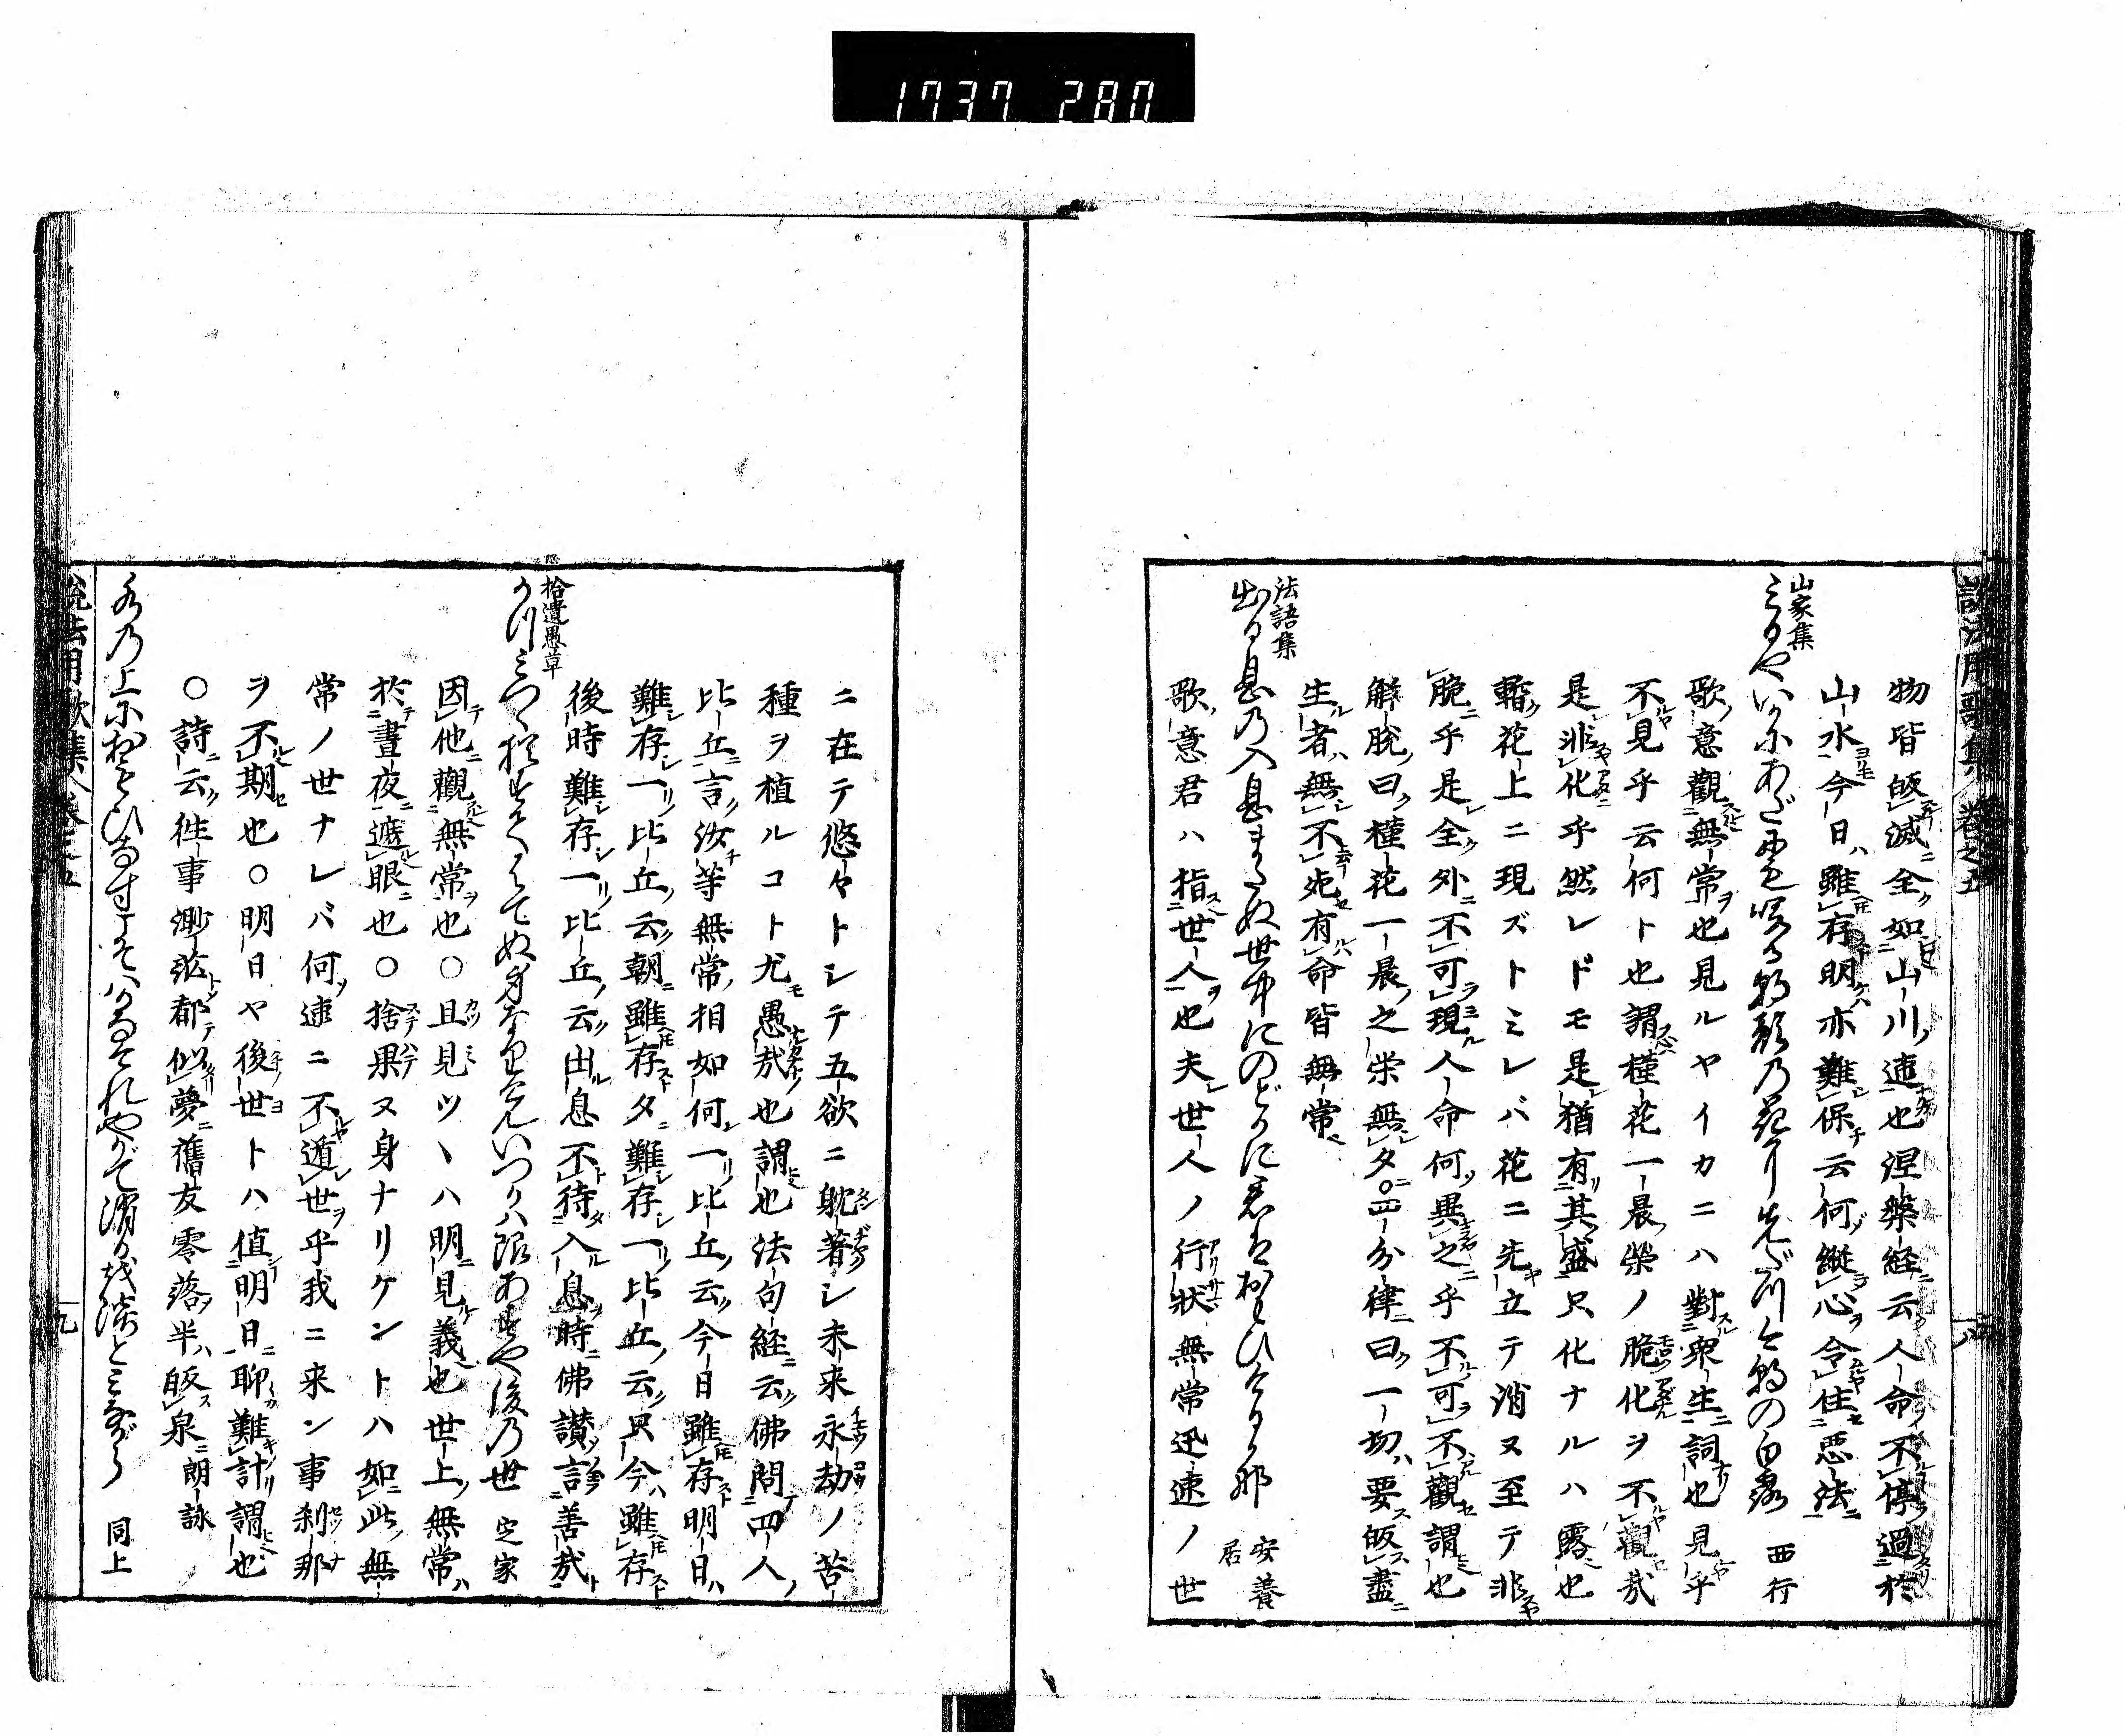 1737 280
説法用歌集 巻之五 八
物皆皈滅全如山川速也涅槃経云人命不停過於
山水今日雖存明亦難保云何縦心令住悪法
山家集
みるやいかにあだにも咲る朝顔の花に先だつけさの白露 西行
歌意觀無常也見ルヤイカニハ對衆生詞也見乎
不見乎云何ト也謂槿花一晨榮ノ脆化ヲ不觀哉
是非化乎然レドモ是猶有其盛只化ナルハ露也
暫花上ニ現ズトミレバ花ニ先立テ消ヌ至テ非
脆乎是全外不可現人命何異之乎不可不觀謂也
解脱曰槿花一晨之栄無夕○四分律曰一切要皈盡
生者無不死有命皆無常
法語集
出る息の入息またぬ世中にのどかに君はおもひける哉 安養
居
歌意君ハ指世人也夫世人ノ行状無常迅速ノ世
ニ在テ悠々トシテ五欲ニ躭著シ未来永劫ノ苦
種ヲ植ルコト尤愚哉也謂也法句経云佛問四人
比丘言汝等無常相如何一比丘云今日雖存明日
難存一比丘云朝雖存夕難存一比丘云只今雖存
後時難存一比丘云出息不待入息時佛讃言善哉
拾遺愚草
かつみつゝ捨もはてぬ身なりけんいつかは限あすや後の世 定家
因他觀無常也○且見ツヽハ明見義也世上無常
於晝夜遮眼也○捨果ヌ身ナリケントハ如此無
常ノ世ナレバ何速ニ不遁世乎我ニ来ン事刹那
ヲ不期也○明日ヤ後世トハ値明日聊難計謂也
○詩云往事渺茫都似夢舊友零落半皈泉朗詠
水の上におもひなすこそはかなけれやがて消るを泡とみながら 同上
説法用歌集 巻之五 九